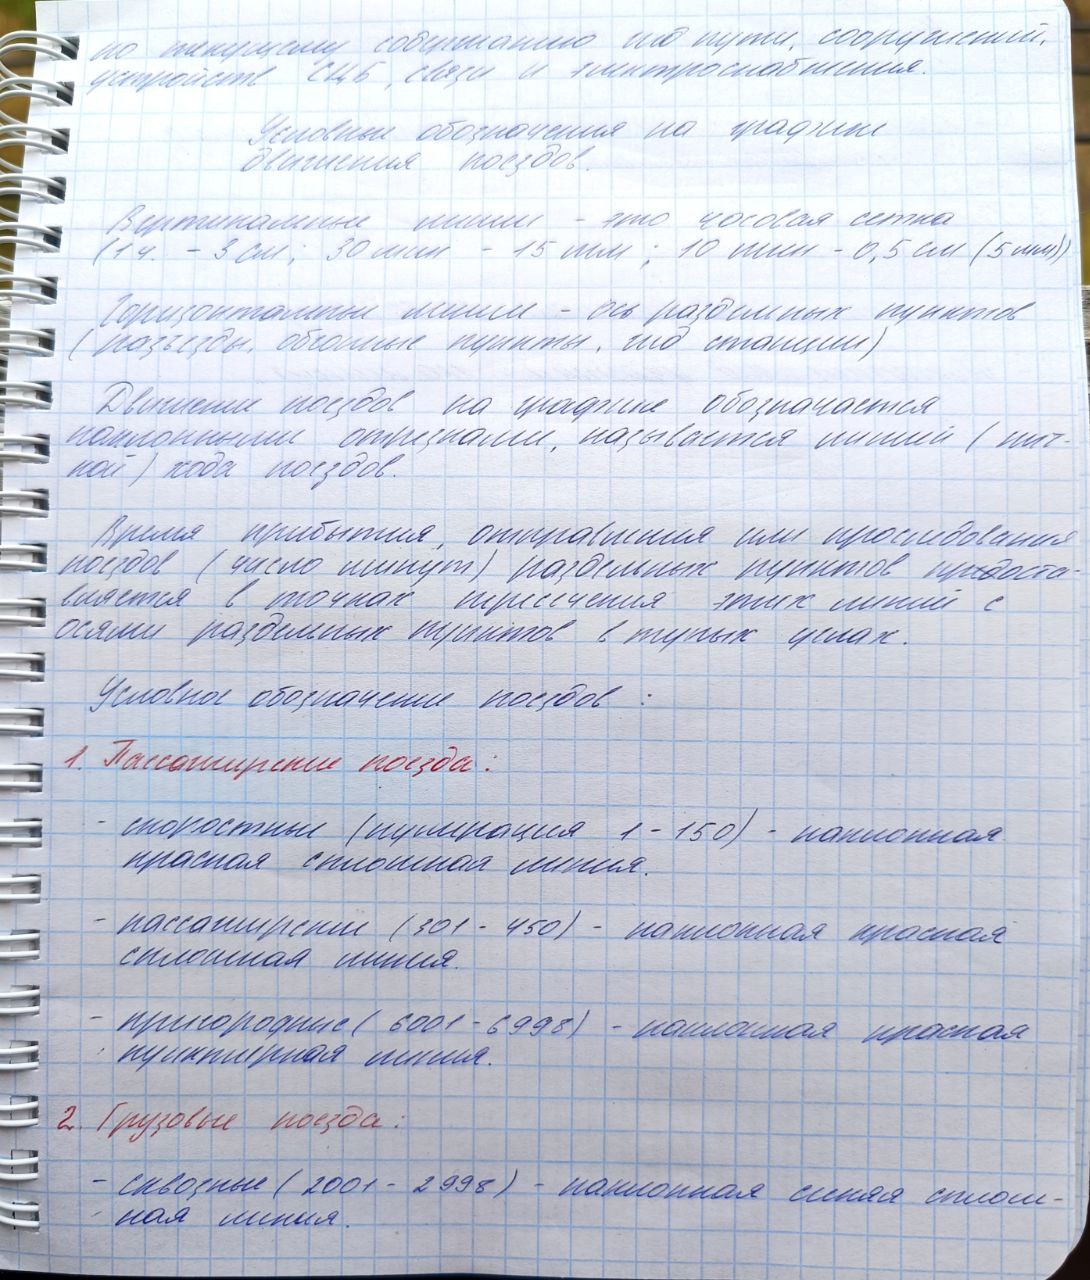 по текущему содержанию жд пути, сооружений,
устройств СЦБ, связи и электроснабжения.
Условные обозначения на графике
движения поездов.
Вертикальные линии - это часовая сетка
(1 ч. - 3 см; 30 мин - 15 мм; 10 мин - 0,5 см (5 мм))
Горизонтальные линии - ось раздельных пунктов
(разъезды, обгонные пункты, жд станции)
Движение поездов на графике обозначается
наклонными отрезками, называется линией (нит-
кой) хода поездов.
Время прибытия, отправления или проследования
поездов (число минут) раздельных пунктов предоста-
вляется в точках пересечения этих линий с
осями раздельных пунктов в тупых углах.
Условное обозначение поездов :
1. Пассажирские поезда:
- скоростные (нумерация 1 - 150) - наклонная
красная сплошная линия.
- пассажирские (301 - 450) - наклонная красная
сплошная линия.
- пригородные (6001 - 6998) - наклонная красная
пунктирная линия.
2. Грузовые поезда:
- сквозные (2001 - 2998) - наклонная синяя сплош-
ная линия.